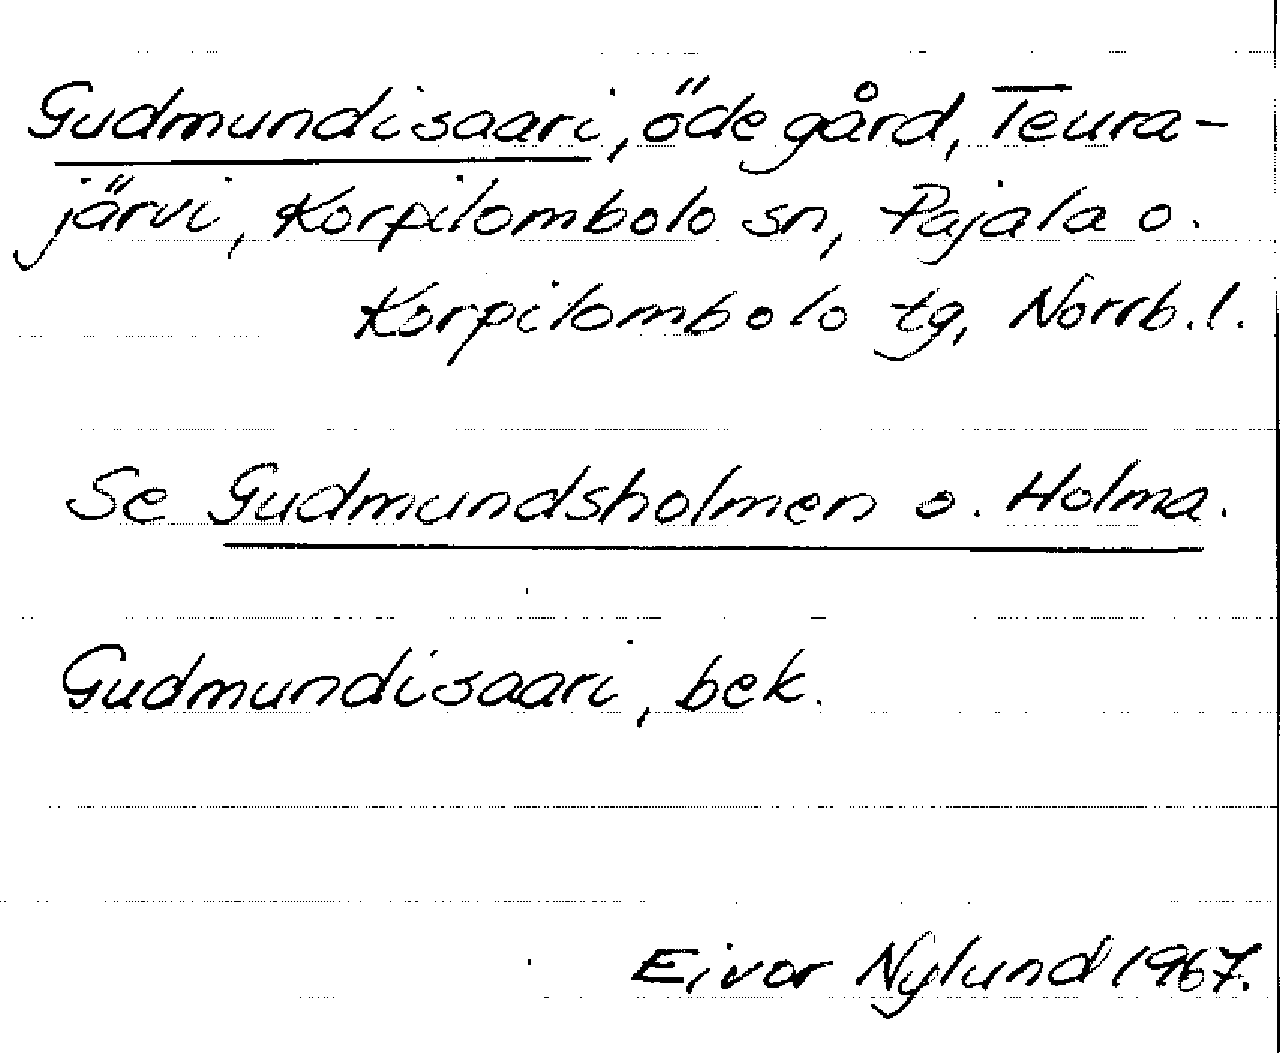 Gudmundisaari, ödegård, Teura-
järvi, Korpilombolo sn, Pajala o.
Korpilombolo tg, Norrb.l.
Se Gudmundsholmen o. Holma.
Gudmundisaari, bek.
Eivor Nylund 1967.